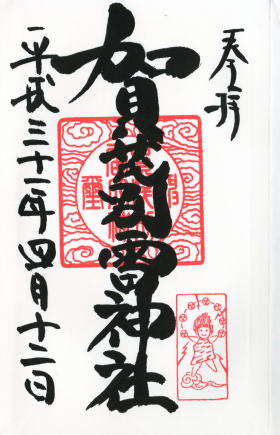 奉拝
賀茂別雷神社
平成三十一年四月十二日